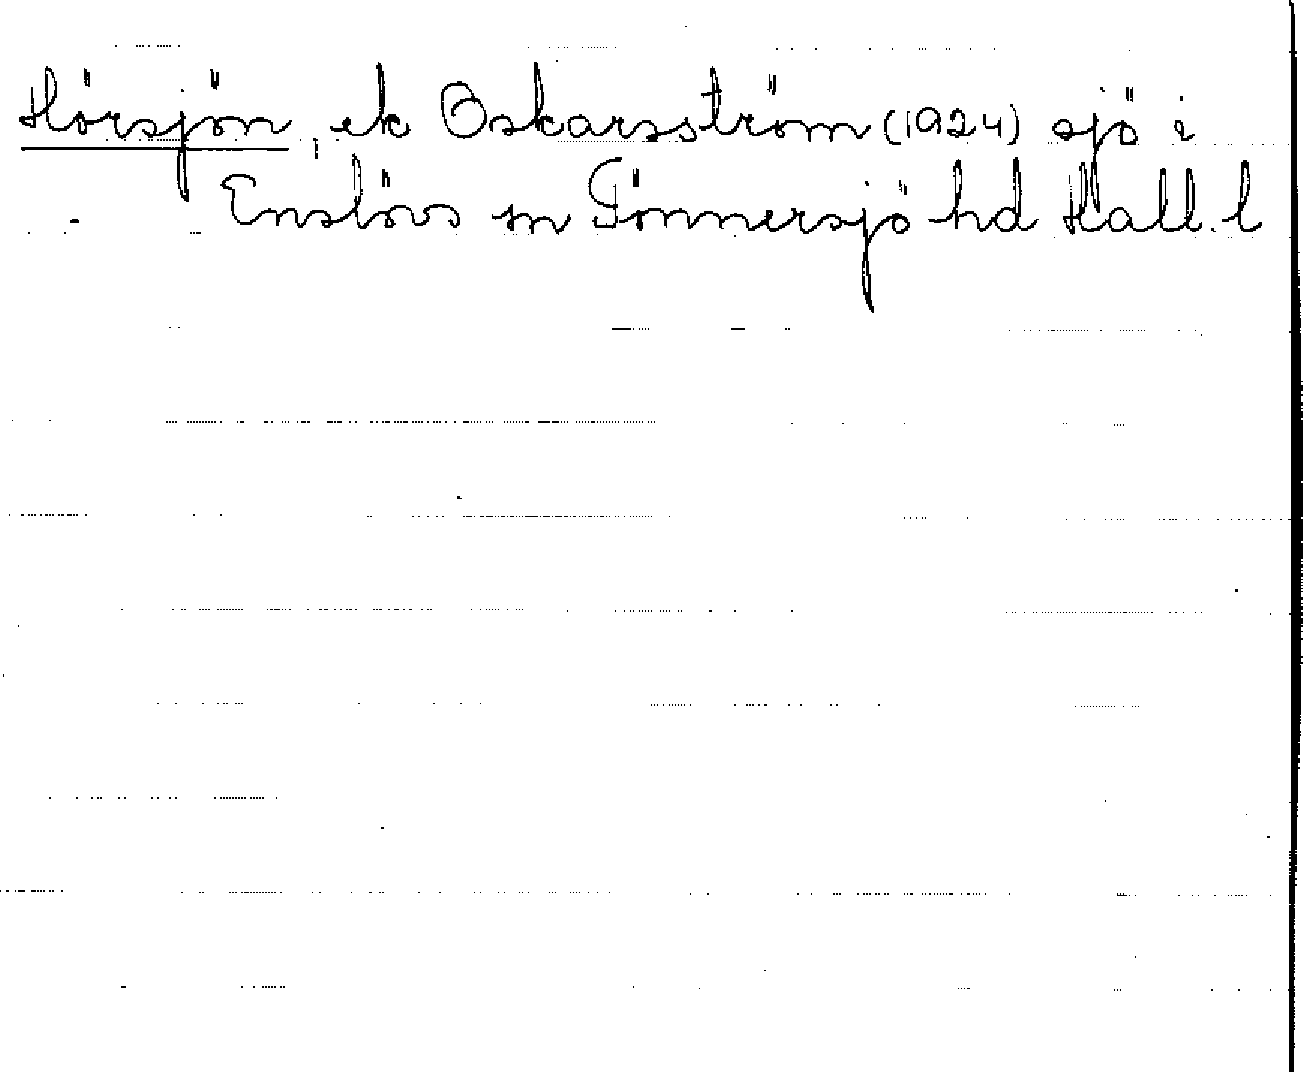 Hörsjön, ek Oskarsström (1924) sjö i
Enslövs sn Tönnersjö hd Hall. l